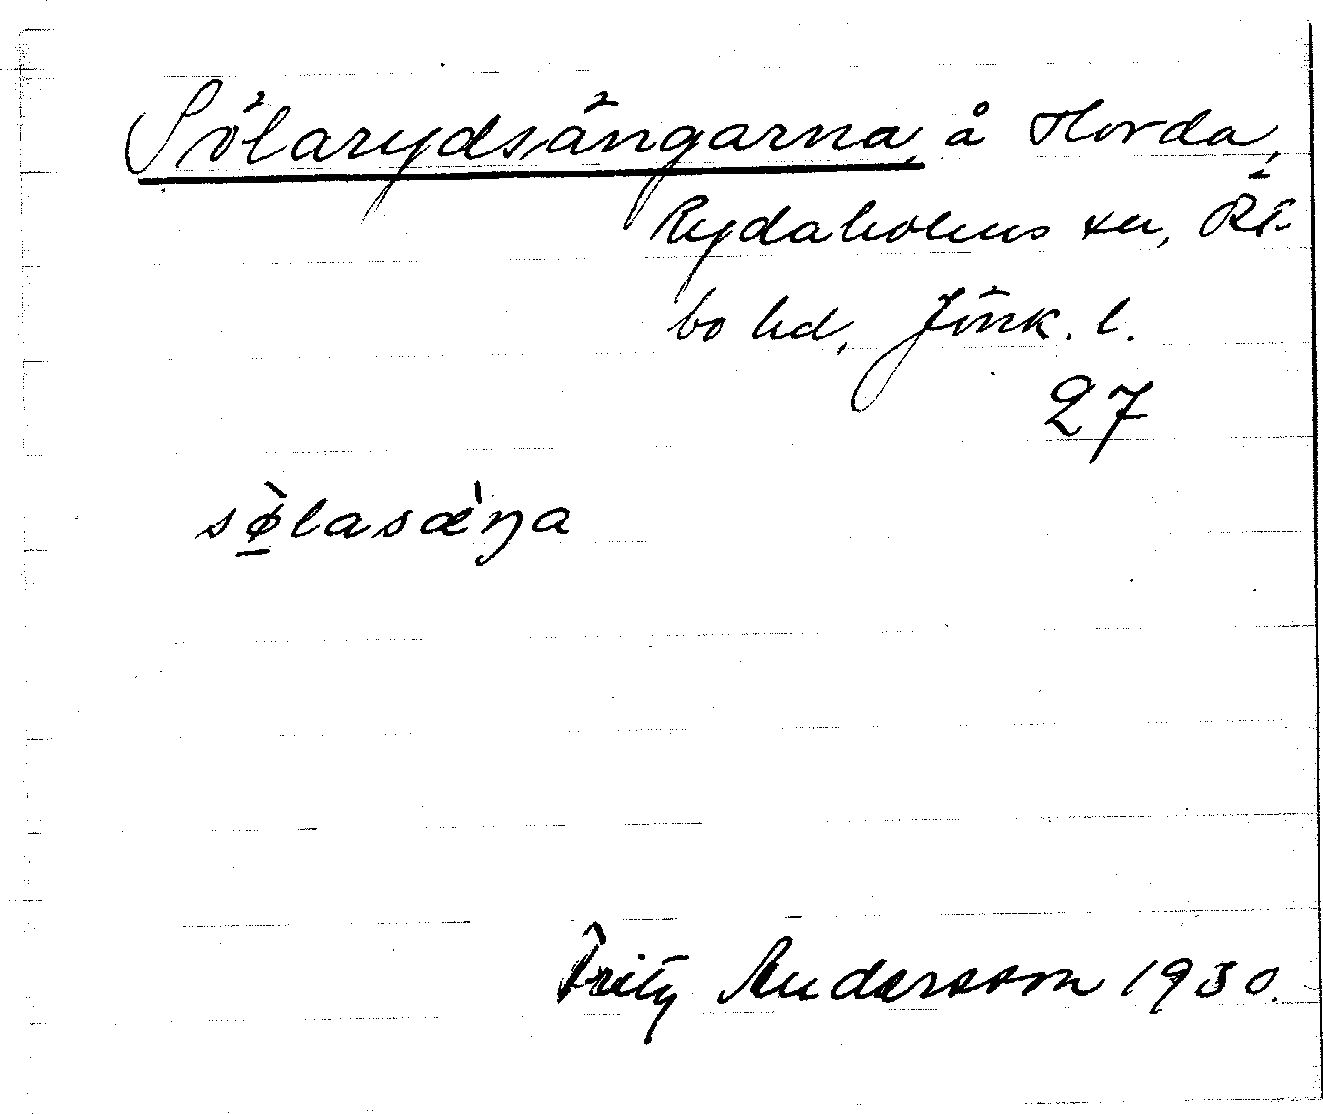 Sölarydsängarna, å Horda,
Rydaholms sn, Öst-
bo hd, Jönk. l.
27
sø̀lasæ̀ŋa
Fritz Andersson 1930.